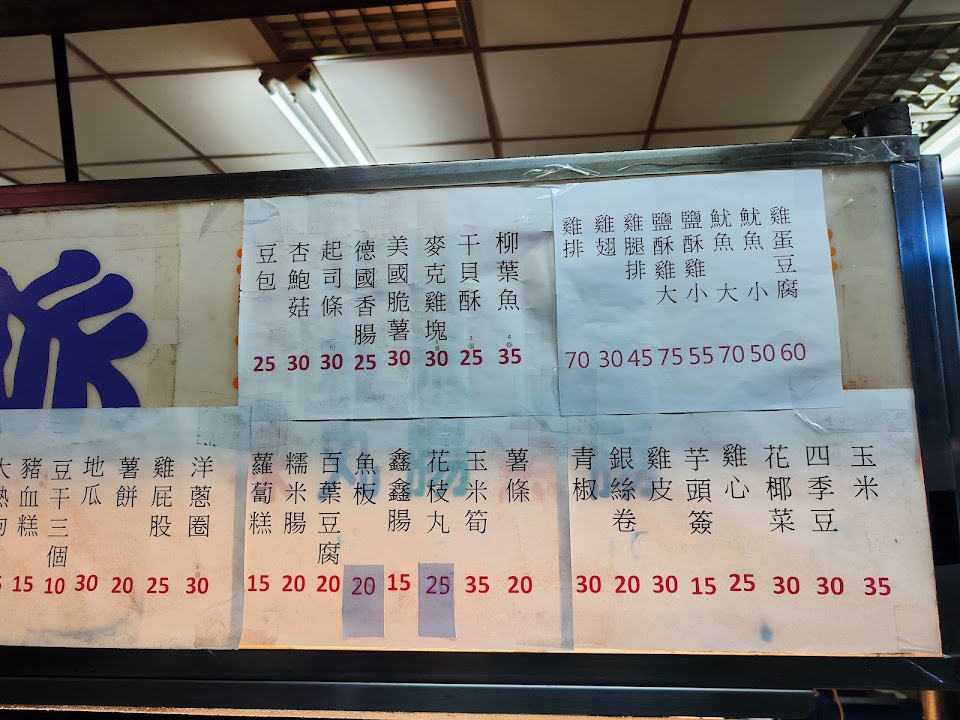 派
豆包 25
杏鮑菇 30
起司條 一份 30
德國香腸 25
美國脆薯 30
麥克雞塊 30
干貝酥 3個 25
柳葉魚 4條 35
雞排 70
雞翅 30
雞腿排 45
鹽酥雞大 75
鹽酥雞小 55
魷魚大 70
魷魚小 50
雞蛋豆腐 60
大熱狗
豬血糕 15
豆干三個 10
地瓜 30
薯餅 20
雞屁股 25
洋蔥圈 30
蘿蔔糕 15
糯米腸 20
百葉豆腐 20
魚板 20
鑫鑫腸 15
花枝丸 25
玉米筍 35
薯條 20
青椒 30
銀絲卷 20
雞皮 30
芋頭簽 15
雞心 25
花椰菜 30
四季豆 30
玉米 35